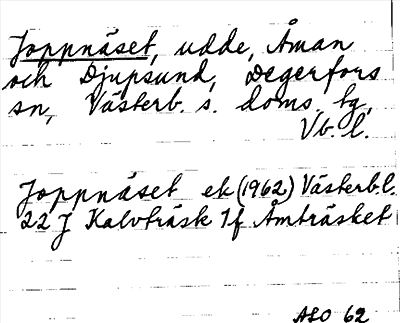 Joppnäset, udde, Åman
och Djupsund, Degerfors
sn, Västerb. s. doms. tg,
Vb. l.
Joppnäset ek (1962) Västerb.l.
22 J Kalvträsk 1f Åmträsket
ALO 62